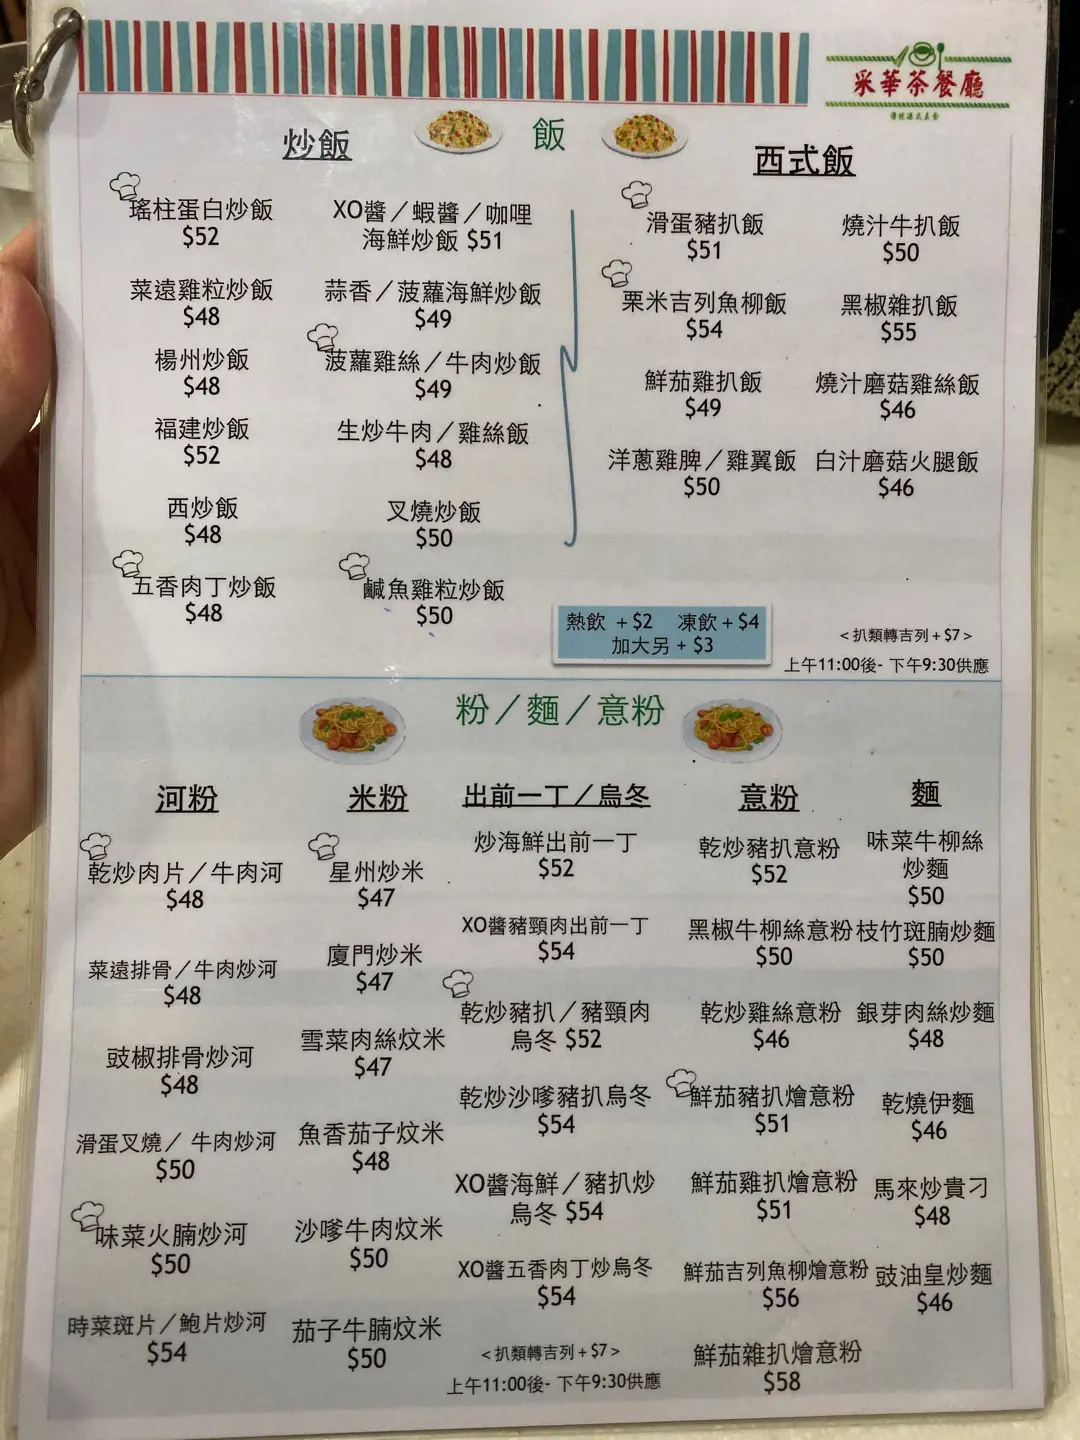 采華茶餐廳
傳統港式美食
飯
炒飯
西式飯
瑤柱蛋白炒飯
$52
XO醬／蝦醬／咖哩
海鮮炒飯 $51
菜遠雞粒炒飯
$48
蒜香／菠蘿海鮮炒飯
$49
楊州炒飯
$48
菠蘿雞絲／牛肉炒飯
$49
福建炒飯
$52
生炒牛肉／雞絲飯
$48
西炒飯
$48
叉燒炒飯
$50
五香肉丁炒飯
$48
鹹魚雞粒炒飯
$50
滑蛋豬扒飯
$51
燒汁牛扒飯
$50
粟米吉列魚柳飯
$54
黑椒雜扒飯
$55
鮮茄雞扒飯
$49
燒汁磨菇雞絲飯
$46
洋蔥雞脾／雞翼飯
$50
白汁磨菇火腿飯
$46
熱飲 +$2 凍飲+$4
加大另 + $3
<扒類轉吉列+$7>
上午11:00後- 下午9:30供應
粉／麵／意粉
河粉
乾炒肉片／牛肉河
$48
菜遠排骨／牛肉炒河
$48
豉椒排骨炒河
$48
滑蛋叉燒／ 牛肉炒河
$50
味菜火腩炒河
$50
時菜斑片／鮑片炒河
$54
米粉
星州炒米
$47
廈門炒米
$47
雪菜肉絲炆米
$47
魚香茄子炆米
$48
沙嗲牛肉炆米
$50
茄子牛腩炆米
$50
出前一丁／烏冬
炒海鮮出前一丁
$52
XO醬豬頸肉出前一丁
$54
乾炒豬扒／豬頸肉
烏冬 $52
乾炒沙嗲豬扒烏冬
$54
XO醬海鮮／豬扒炒
烏冬 $54
XO醬五香肉丁炒烏冬
$54
<扒類轉吉列+$7>
上午11:00後- 下午9:30供應
意粉
乾炒豬扒意粉
$52
黑椒牛柳絲意粉
$50
乾炒雞絲意粉
$46
鮮茄豬扒燴意粉
$51
鮮茄雞扒燴意粉
$51
鮮茄吉列魚柳燴意粉
$56
鮮茄雜扒燴意粉
$58
麵
味菜牛柳絲
炒麵
$50
枝竹斑腩炒麵
$50
銀芽肉絲炒麵
$48
乾燒伊麵
$46
馬來炒貴刁
$48
豉油皇炒麵
$46